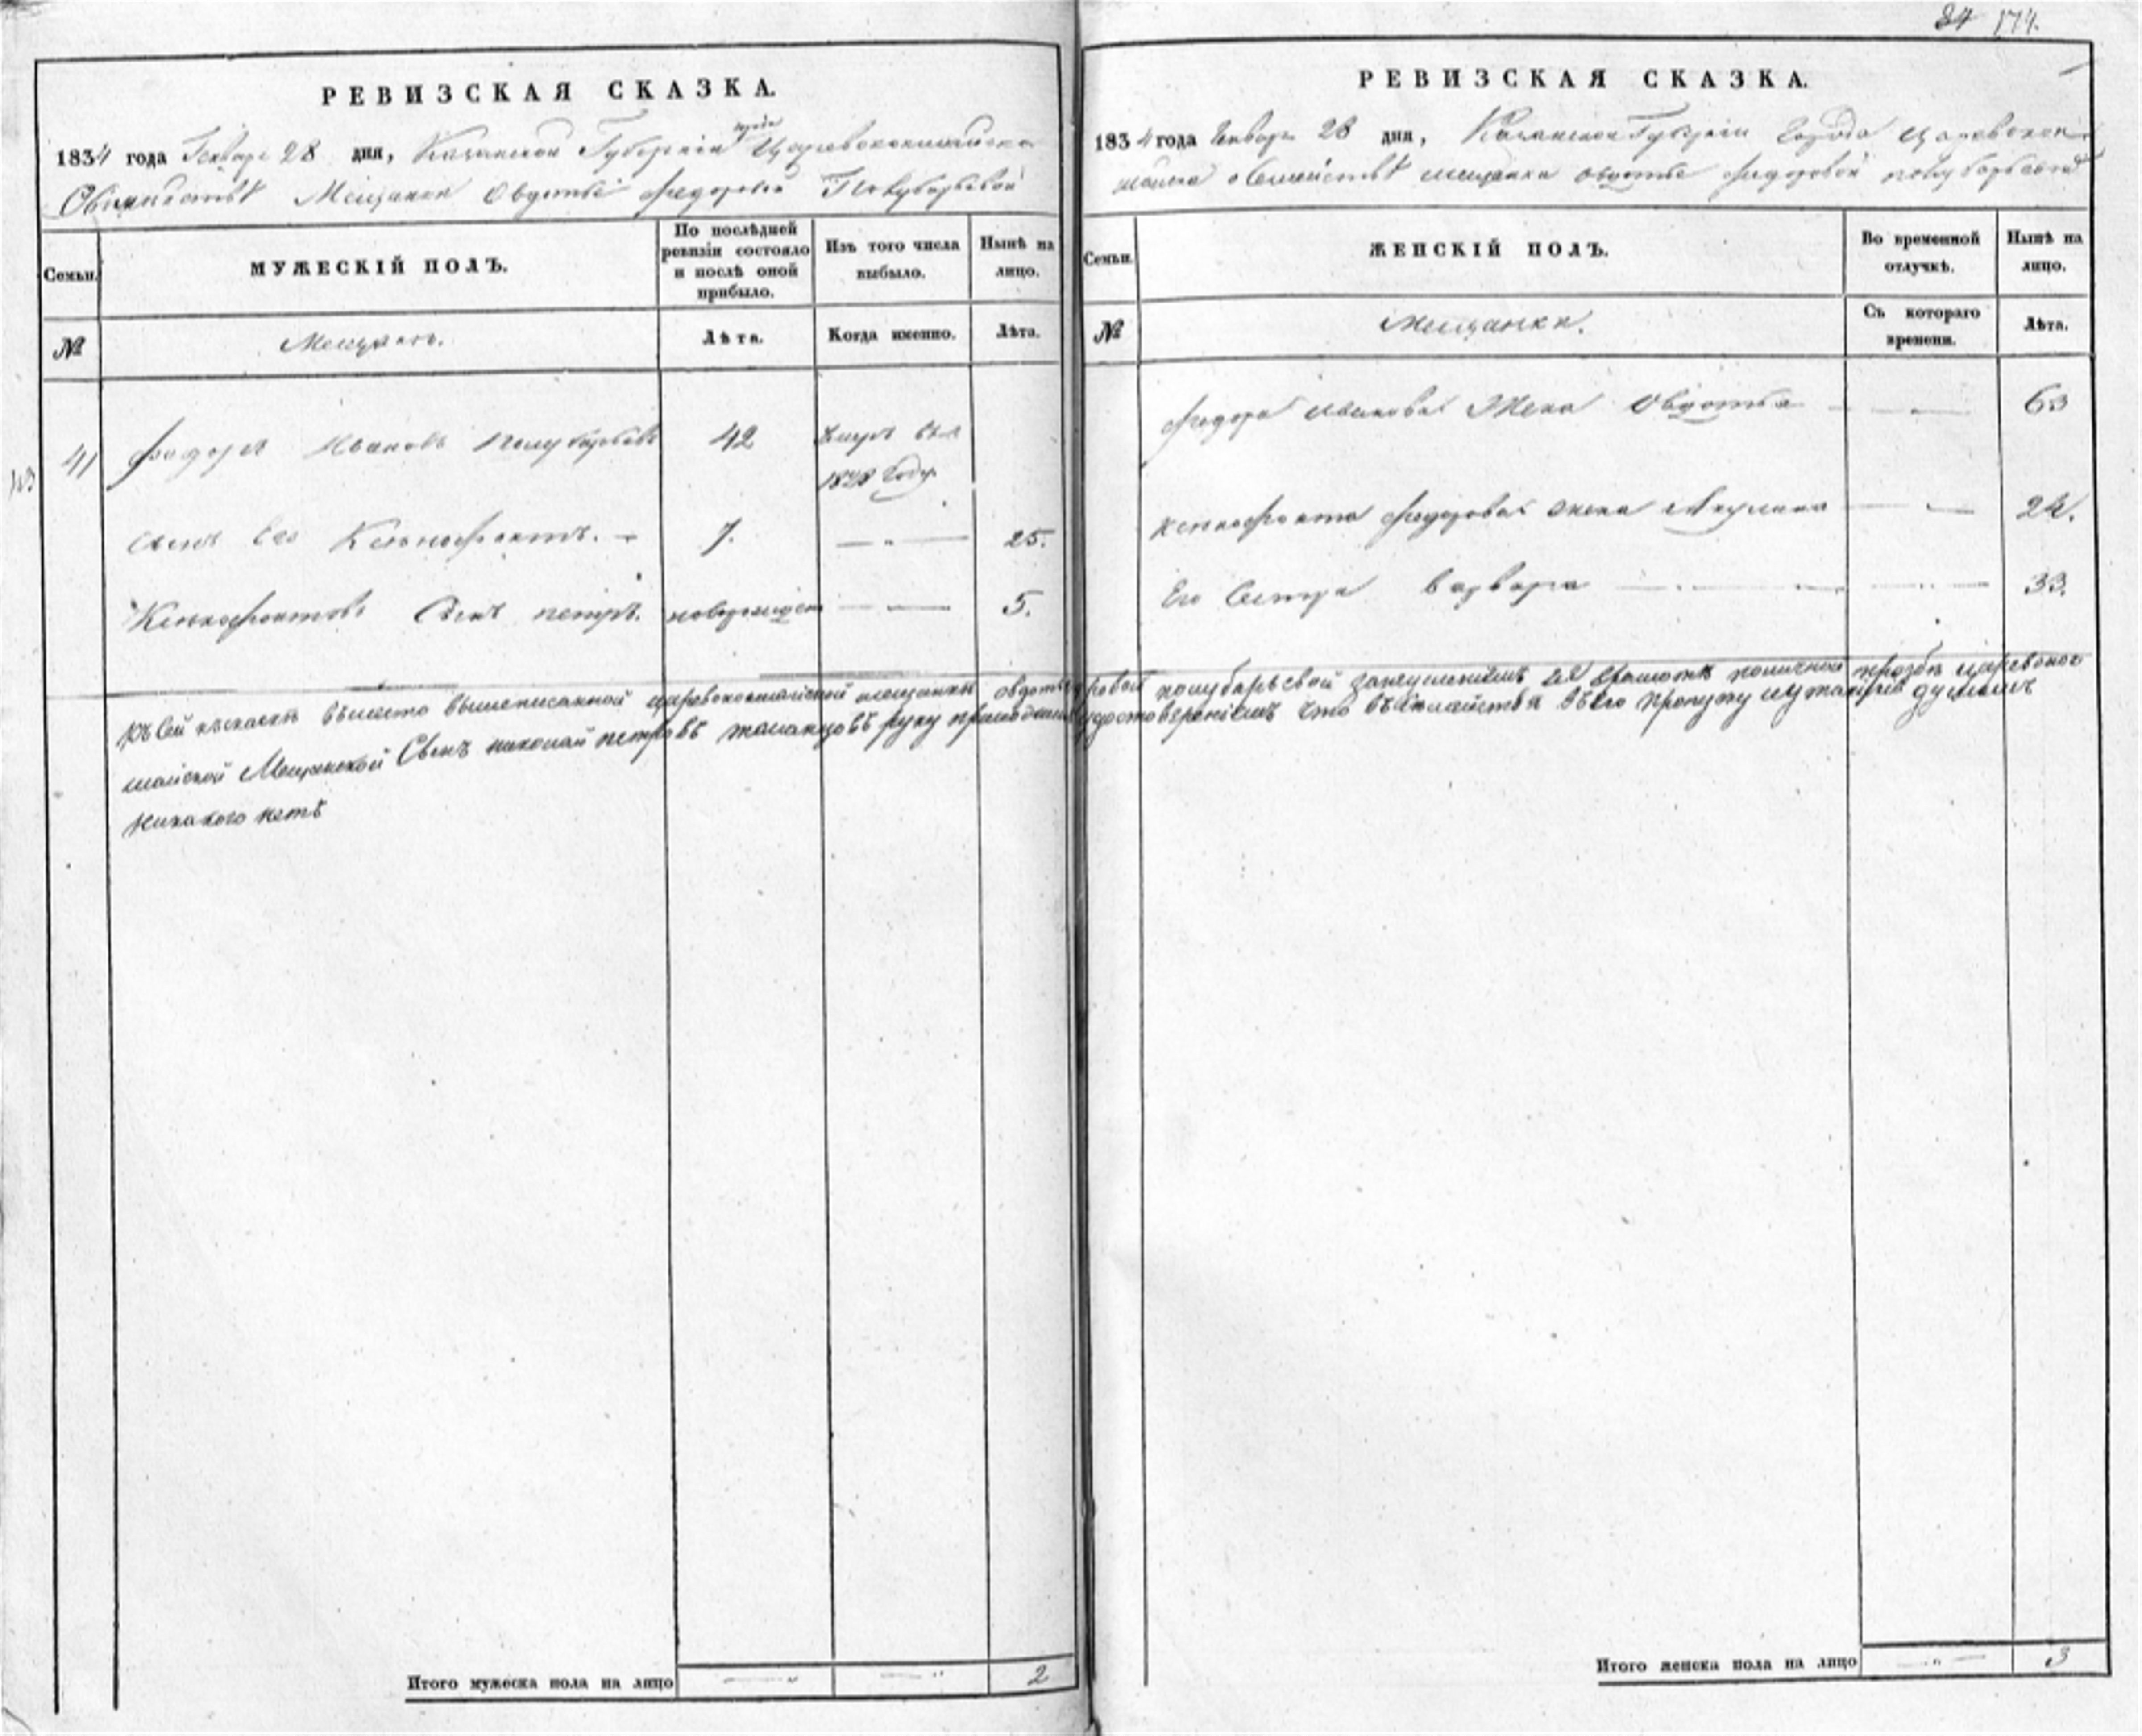 84 174.
РЕВИЗСКАЯ СКАЗКА.
1834 года Генваря 28 дня, Казанской Губернии города Царевококшайска
Мещанки Овдотьи Федоровой Полубарьевой
Семьи. МУЖЕСКІЙ ПОЛЪ. По послѣдней ревизіи состояло и послѣ оной прибыло. Изъ того числа выбыло. Нынѣ на лицо.
№ Мещанъ. Лѣта. Когда именно. Лѣта.
41 Федоръ Ивановъ Полубарьевъ 42 умре въ
1828 году
Сынъ его Ксенофонтъ. 7. 25.
Ксенофонтовъ Сынъ петръ. новорожден 5.
Итого мужеска пола на лицо 2
РЕВИЗСКАЯ СКАЗКА.
1834 года Генваря 28 дня, Казанской Губернии Города Царевокок
шайска о Семействѣ мещанки Овдотьи Федоровой полубарьевой
Семьи. ЖЕНСКІЙ ПОЛЪ. Во временной отлучкѣ. Нынѣ на лицо.
№ Мещанки. Съ котораго времени. Лѣта.
Федора Иванова Жена Овдотья 63
Ксенофонта Федорова жена Акулина 24.
Его Сестра Варвара 33.
Къ сей вместо вышеписанной царевококшайской мещанки овдотьи Федоровой полубарьевой за неумениемъ ея грамоте по личной прозбе царевокок
шайской Мещанской Сынъ николай петровъ руку приложилъ что въ семействе пропуску душамъ
никакого нетъ
Итого женска пола на лицо 3